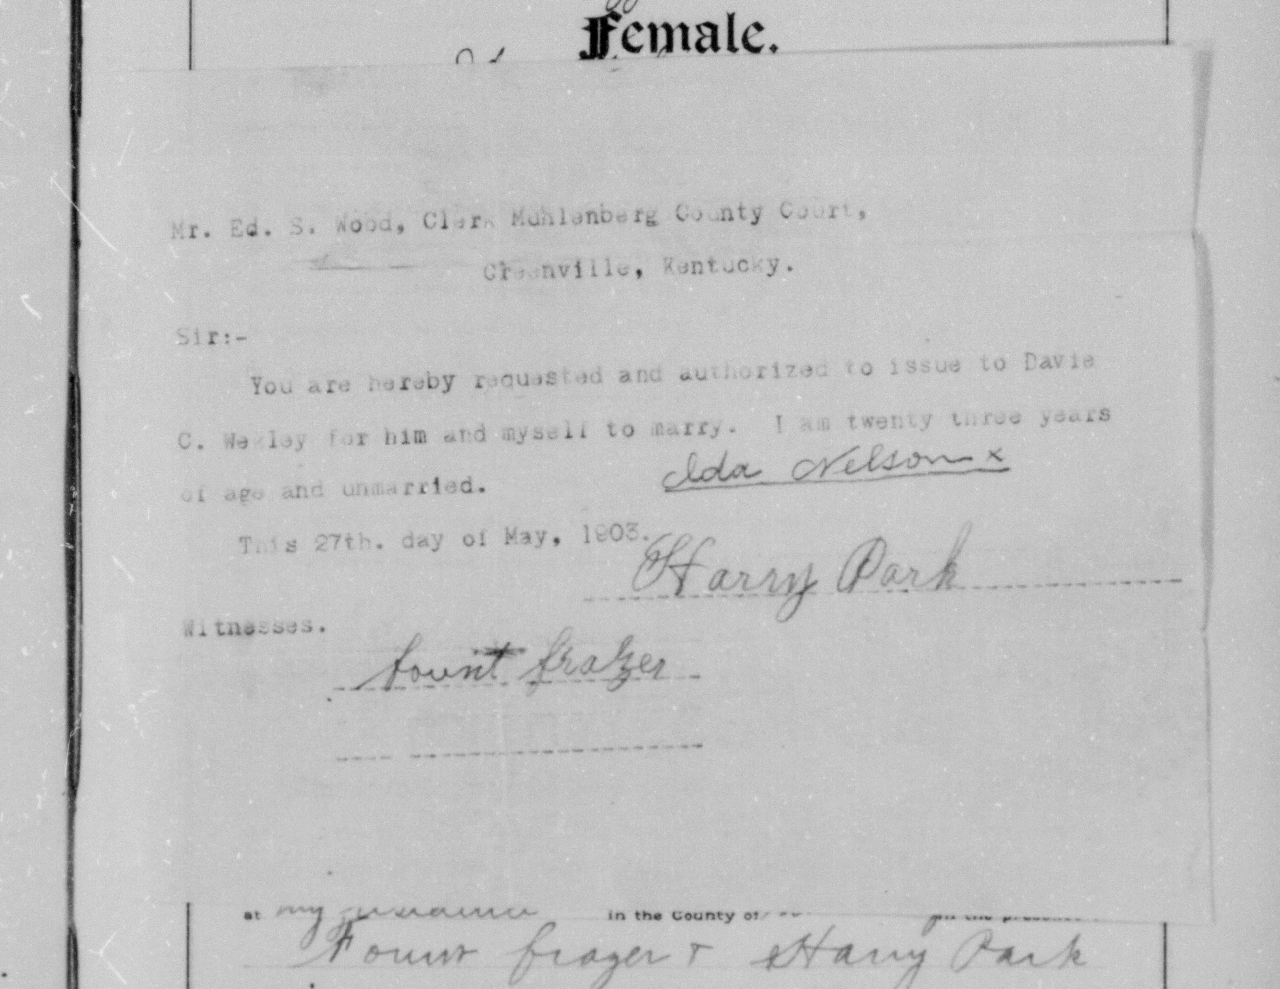 Female.
Mr. Ed. S. Wood, Clerk Muhlenberg County Court,
Greenville, Kentucky.
Sir:-
You are hereby requested and authorized to issue to Davie
C. Weakley for him and myself to marry. I am twenty three years
of age and unmarried.
Ida Nelson x
This 27th. day of May, 1903.
Harry Park
Witnesses.
Fount Frazer
at my residence in the County of
Fount Frazer & Harry Park